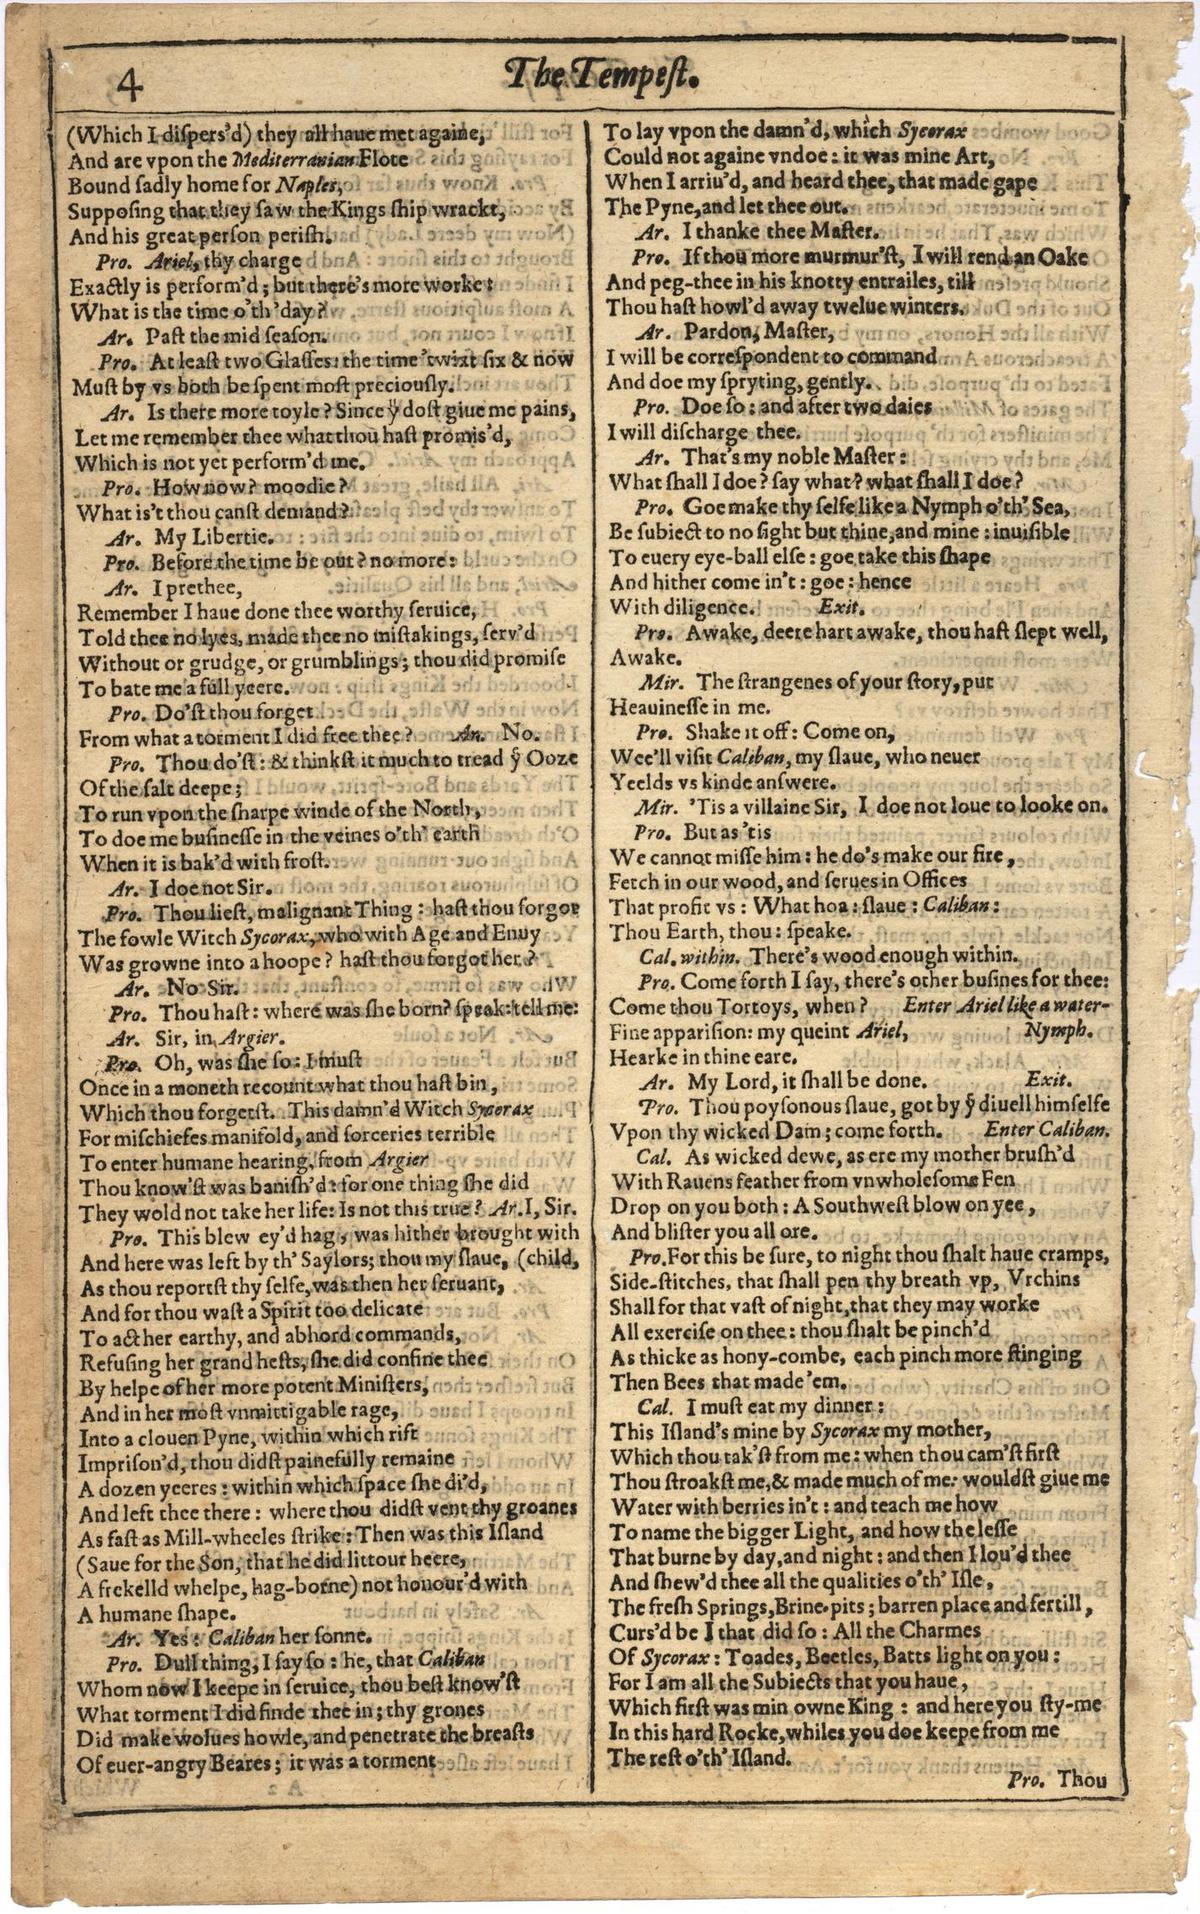 4
The Tempeſt.
(Which I diſpers'd) they all haue met againe,
And are vpon the Mediterranian Flote
Bound ſadly home for Naples,
Suppoſing that they ſaw the Kings ſhip wrackt,
And his great perſon periſh.
Pro. Ariel, thy charge
Exactly is perform'd; but there's more worke:
What is the time o'th'day?
Ar. Paſt the mid ſeaſon.
Pro. At leaſt two Glaſſes: the time 'twixt ſix & now
Muſt by vs both be ſpent moſt preciouſly.
Ar. Is there more toyle? Since yͭ doſt giue me pains,
Let me remember thee what thou haſt promis'd,
Which is not yet perform'd me.
Pro. How now? moodie?
What is't thou canſt demand?
Ar. My Libertie.
Pro. Before the time be out? no more:
Ar. I prethee,
Remember I haue done thee worthy ſeruice,
Told thee no lyes, made thee no miſtakings, ſerv'd
Without or grudge, or grumblings; thou did promiſe
To bate me a full yeere.
Pro. Do'ſt thou forget
From what a torment I did free thee? Ar. No.
Pro. Thou do'ſt: & thinkſt it much to tread yͤ Ooze
Of the ſalt deepe;
To run vpon the ſharpe winde of the North,
To doe me buſineſſe in the veines o'th' earth
When it is bak'd with froſt.
Ar. I doe not Sir.
Pro. Thou lieſt, malignant Thing: haſt thou forgot
The fowle Witch Sycorax, who with Age and Enuy
Was growne into a hoope? haſt thou forgot her?
Ar. No Sir.
Pro. Thou haſt: where was ſhe born? ſpeak: tell me:
Ar. Sir, in Argier.
Pro. Oh, was ſhe ſo: I muſt
Once in a moneth recount what thou haſt bin,
Which thou forgetſt. This damn'd Witch Sycorax
For miſchiefes manifold, and ſorceries terrible
To enter humane hearing, from Argier
Thou know'ſt was baniſh'd: for one thing ſhe did
They wold not take her life: Is not this true? Ar. I, Sir.
Pro. This blew ey'd hag, was hither brought with
And here was left by th' Saylors; thou my ſlaue, (child,
As thou reportſt thy ſelfe, was then her ſeruant,
And for thou waſt a Spirit too delicate
To act her earthy, and abhord commands,
Refuſing her grand heſts, ſhe did confine thee
By helpe of her more potent Miniſters,
And in her moſt vnmittigable rage,
Into a clouen Pyne, within which rift
Impriſon'd, thou didſt painefully remaine
A dozen yeeres: within which ſpace ſhe di'd,
And left thee there: where thou didſt vent thy groanes
As faſt as Mill-wheeles ſtrike: Then was this Iſland
(Saue for the Son, that he did littour heere,
A frekelld whelpe, hag-borne) not honour'd with
A humane ſhape.
Ar. Yes: Caliban her ſonne.
Pro. Dull thing, I ſay ſo: he, that Caliban
Whom now I keepe in ſeruice, thou beſt know'ſt
What torment I did finde thee in; thy grones
Did make wolues howle, and penetrate the breaſts
Of euer-angry Beares; it was a torment
To lay vpon the damn'd, which Sycorax
Could not againe vndoe: it was mine Art,
When I arriu'd, and heard thee, that made gape
The Pyne, and let thee out.
Ar. I thanke thee Maſter.
Pro. If thou more murmur'ſt, I will rend an Oake
And peg-thee in his knotty entrailes, till
Thou haſt howl'd away twelue winters.
Ar. Pardon, Maſter,
I will be correſpondent to command
And doe my ſpryting, gently.
Pro. Doe ſo: and after two daies
I will diſcharge thee.
Ar. That's my noble Maſter:
What ſhall I doe? ſay what? what ſhall I doe?
Pro. Goe make thy ſelfe like a Nymph o'th' Sea,
Be ſubiect to no ſight but thine, and mine: inuiſible
To euery eye-ball elſe: goe take this ſhape
And hither come in't: goe: hence
With diligence. Exit.
Pro. Awake, deere hart awake, thou haſt ſlept well,
Awake.
Mir. The ſtrangenes of your ſtory, put
Heauineſſe in me.
Pro. Shake it off: Come on,
Wee'll viſit Caliban, my ſlaue, who neuer
Yeelds vs kinde anſwere.
Mir. 'Tis a villaine Sir, I doe not loue to looke on.
Pro. But as 'tis
We cannot miſſe him: he do's make our fire,
Fetch in our wood, and ſerues in Offices
That profit vs: What hoa: ſlaue: Caliban:
Thou Earth, thou: ſpeake.
Cal. within. There's wood enough within.
Pro. Come forth I ſay, there's other buſines for thee:
Come thou Tortoys, when? Enter Ariel like a water-
Fine apparition: my queint Ariel, Nymph.
Hearke in thine eare.
Ar. My Lord, it ſhall be done. Exit.
Pro. Thou poyſonous ſlaue, got by yͤ diuell himſelfe
Vpon thy wicked Dam; come forth. Enter Caliban.
Cal. As wicked dewe, as ere my mother bruſh'd
With Rauens feather from vnwholeſome Fen
Drop on you both: A Southweſt blow on yee,
And bliſter you all ore.
Pro. For this be ſure, to night thou ſhalt haue cramps,
Side-ſtitches, that ſhall pen thy breath vp, Vrchins
Shall for that vaſt of night, that they may worke
All exerciſe on thee: thou ſhalt be pinch'd
As thicke as hony-combe, each pinch more ſtinging
Then Bees that made 'em.
Cal. I muſt eat my dinner:
This Iſland's mine by Sycorax my mother,
Which thou tak'ſt from me: when thou cam'ſt firſt
Thou ſtroakſt me, & made much of me: wouldſt giue me
Water with berries in't: and teach me how
To name the bigger Light, and how the leſſe
That burne by day, and night: and then I lou'd thee
And ſhew'd thee all the qualities o'th' Iſle,
The freſh Springs, Brine-pits; barren place and fertill,
Curs'd be I that did ſo: All the Charmes
Of Sycorax: Toades, Beetles, Batts light on you:
For I am all the Subiects that you haue,
Which firſt was min owne King: and here you ſty-me
In this hard Rocke, whiles you doe keepe from me
The reſt o'th' Iſland.
Pro. Thou